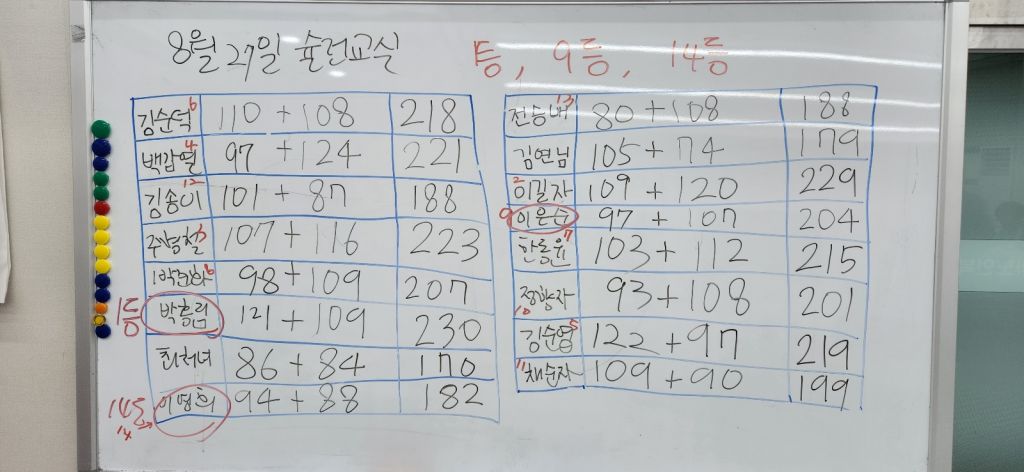 8월 27일 슐런교실
1등, 9등, 14등
김순덕 6 110 + 108 218
백갑열 4 97 + 124 221
김송이 12 101 + 87 188
주영철 3 107 + 116 223
98 + 109 207
1등 박홍림 121 + 109 230
최처녀 86 + 84 170
14등 14 이영희 94 + 88 182
전승배 13 80 + 108 188
김연님 105 + 74 179
2 이길자 109 + 120 229
9 이은순 97 + 107 204
한용윤 7 103 + 112 215
정향자 10 93 + 108 201
김순영 5 122 + 97 219
11 채순자 109 + 90 199